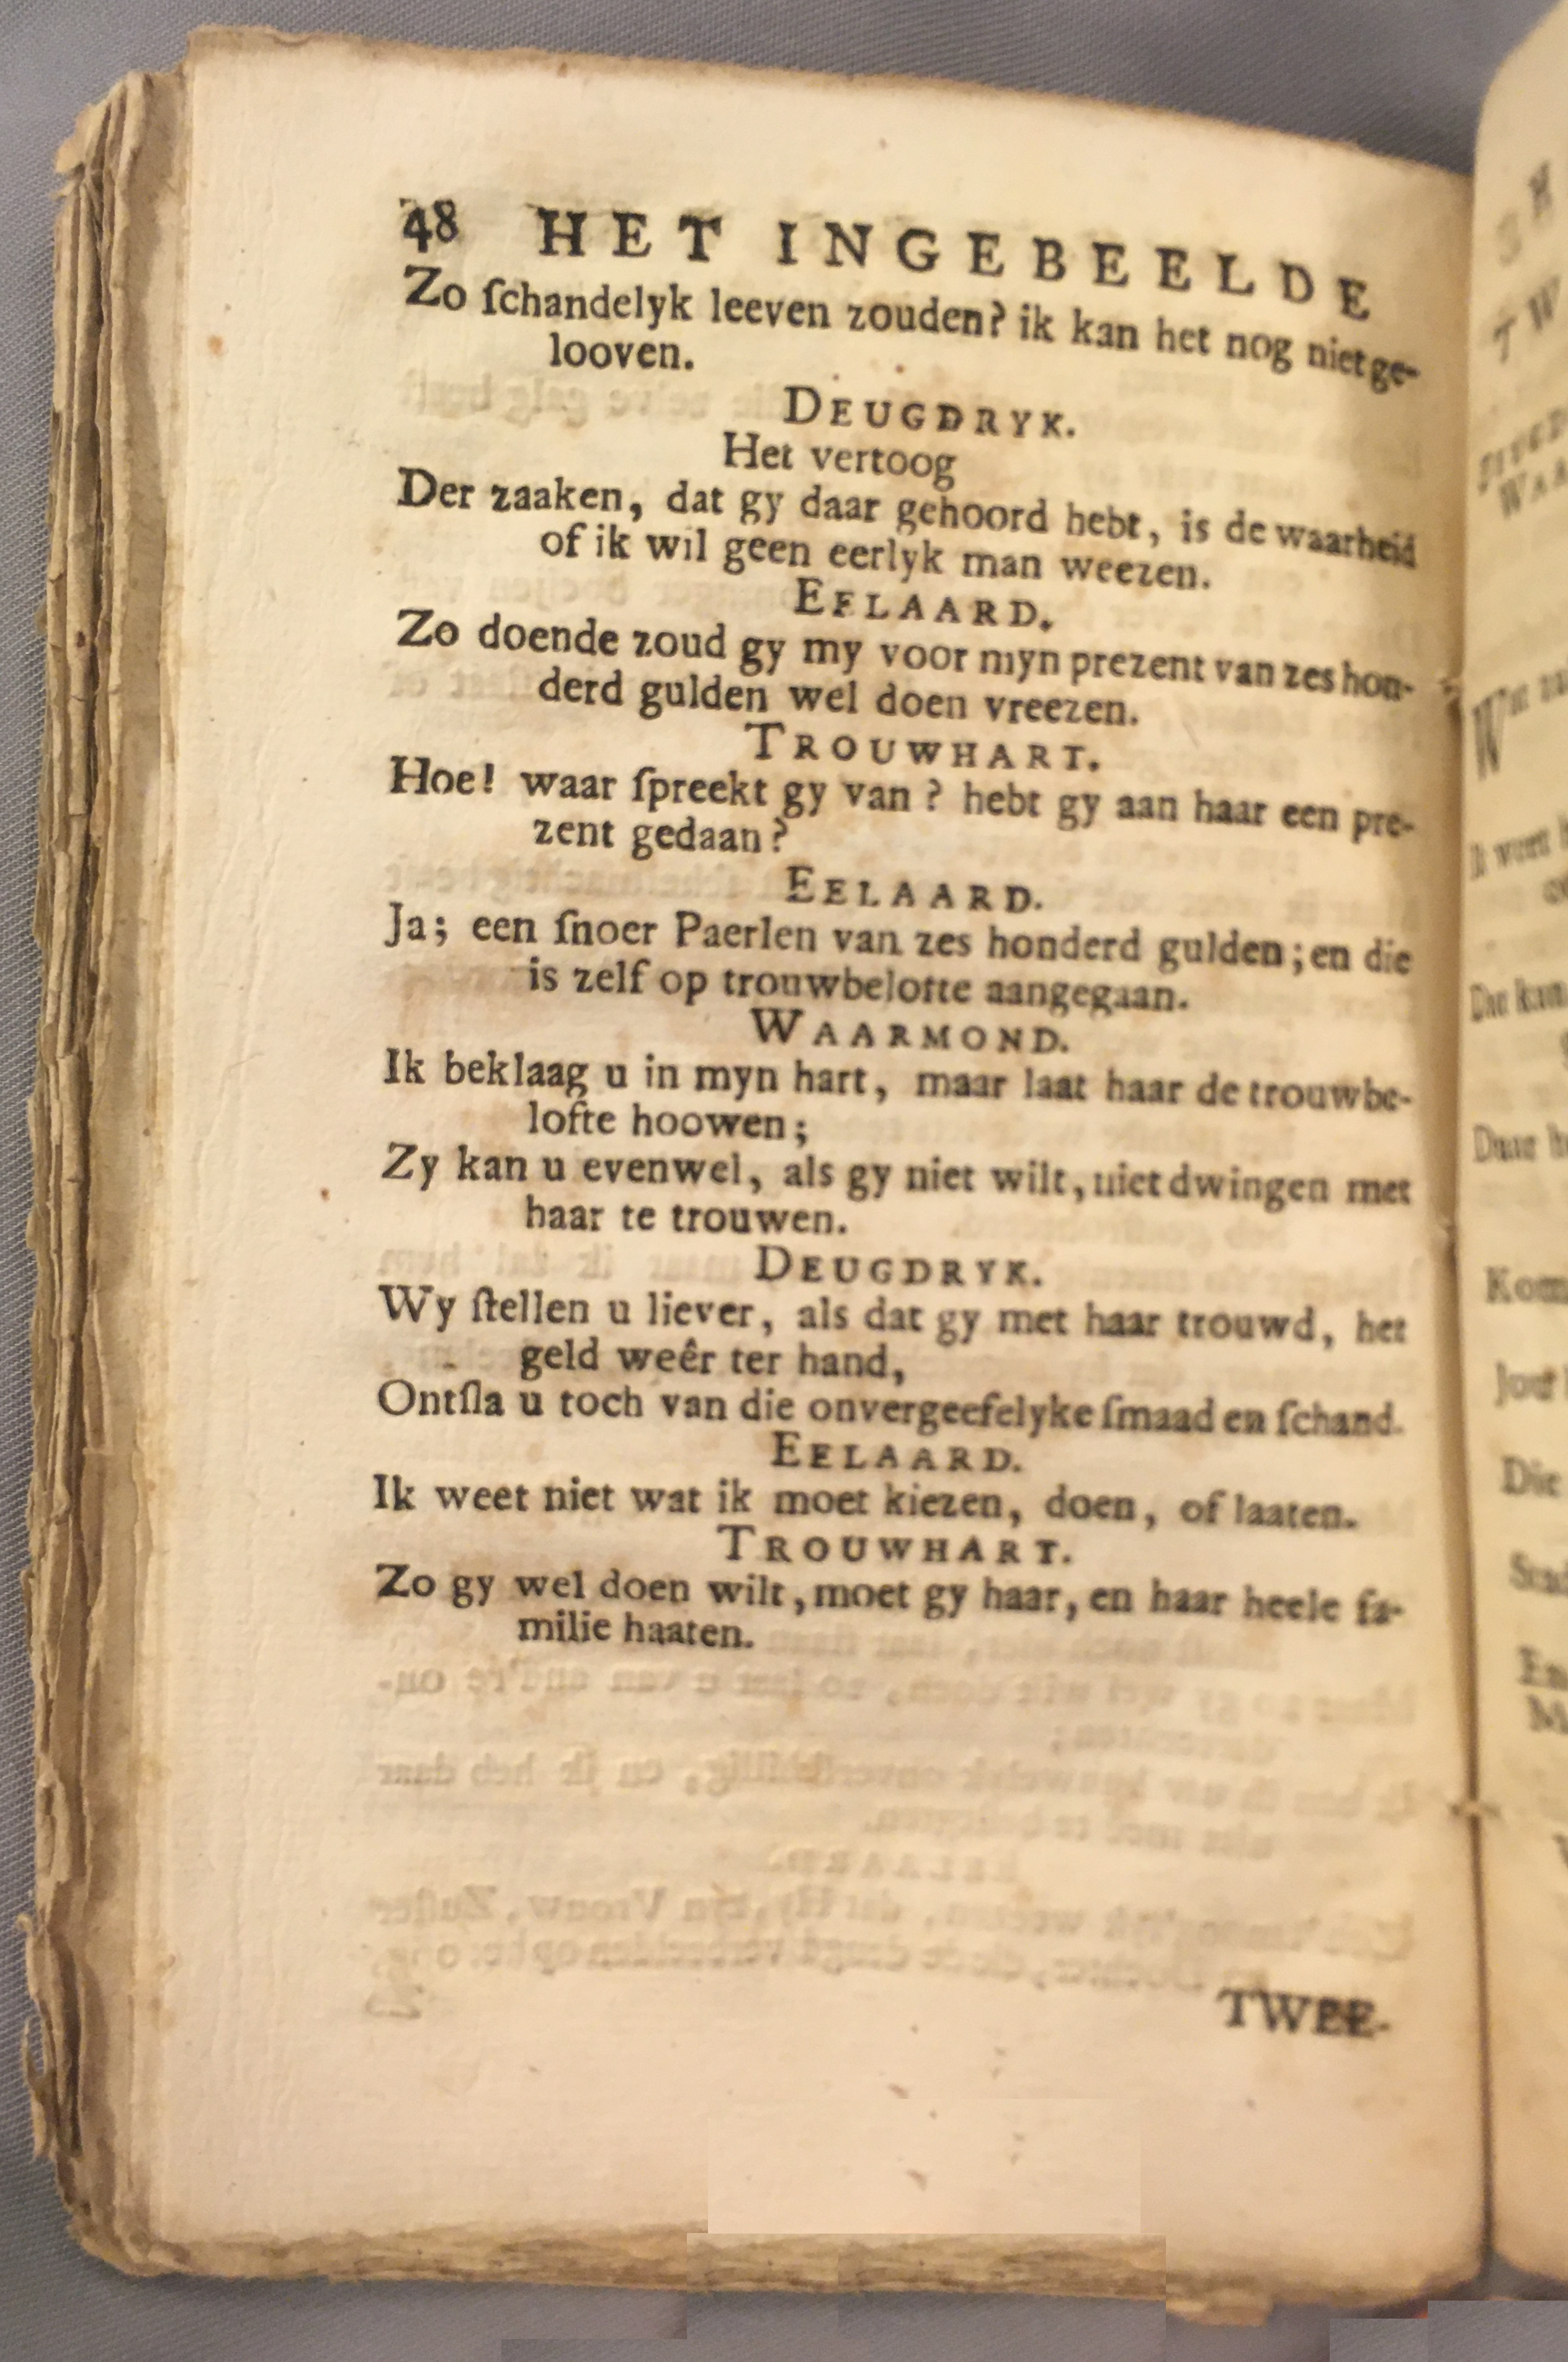 48 HET INGEBEELDE
Zo ſchandelyk leeven zouden? ik kan het nog niet ge-
looven.
DEUGDRYK.
Het vertoog
Der zaaken, dat gy daar gehoord hebt, is de waarheid
of ik wil geen eerlyk man weezen.
EFLAARD.
Zo doende zoud gy my voor myn prezent van zes hon-
derd gulden wel doen vreezen.
TROUWHART.
Hoe! waar ſpreekt gy van? hebt gy aan haar een pre-
zent gedaan?
EELAARD.
Ja; een ſnoer Paerlen van zes honderd gulden; en die
is zelf op trouwbelofte aangegaan.
WAARMOND.
Ik beklaag u in myn hart, maar laat haar de trouwbe-
lofte hoowen;
Zy kan u evenwel, als gy niet wilt, niet dwingen met
haar te trouwen.
DEUGDRYK.
Wy ſtellen u liever, als dat gy met haar trouwd, het
geld weêr ter hand,
Ontſla u toch van die onvergeefelyke ſmaad en ſchand.
EELAARD.
Ik weet niet wat ik moet kiezen, doen, of laaten.
TROUWHART.
Zo gy wel doen wilt, moet gy haar, en haar heele fa-
milie haaten.
TWEE-